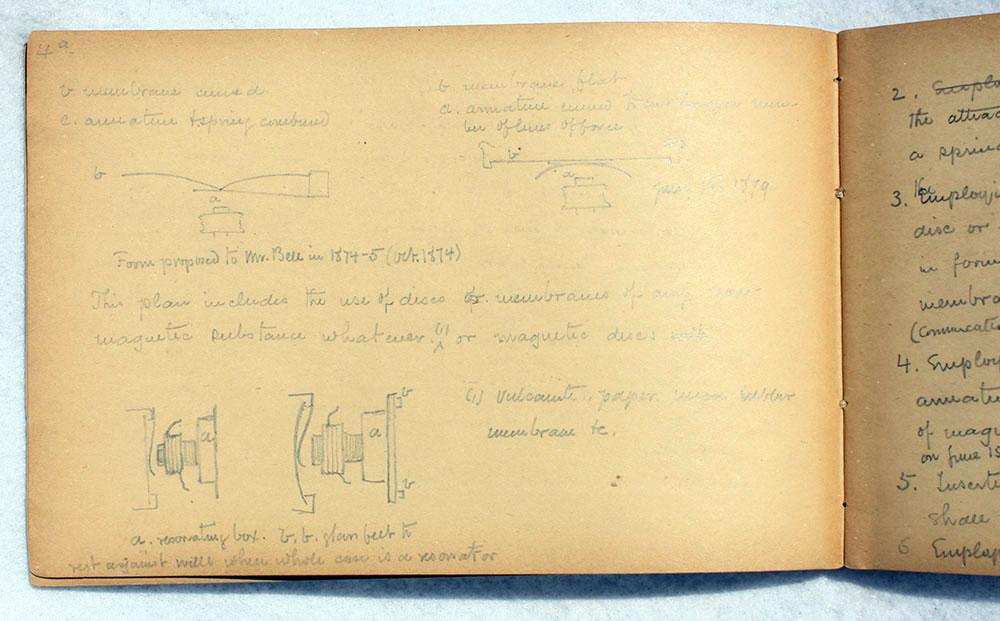 4a
b. membrane curved.
c. armature & spring combined
b membrane flat
a. armature curved to
ber of lines of force.
b
a
b
a
June 1879
Form proposed to Mr. Bell in 1874-5 (Oct. 1874)
This plan includes the use of discs or membranes of any non-
magnetic substance whatever (1) or magnetic discs
a
a
b
b
(1) Vulcanite, paper, rubber
membrane &c.
a. resonating box. b, b. glass feet to
rest against wall when whole case is a resonator
2.
the
a
3. Employi
disc or
in form
membra
4. Employ
of magn
on June 15
5. Inserte
shall
6 Employ